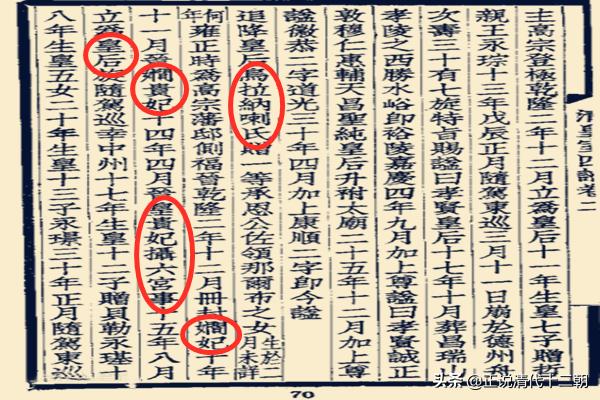 主高宗登極乾隆二年十二月立為皇后十一年生皇七子贈哲
親王永琮十三年戊辰正月隨駕東巡三月十一日崩於德州舟
次壽三十有七旋特旨賜諡曰孝賢皇后十七年十月葬昌瑞
孝陵之西勝水峪卽裕陵嘉慶四年九月加上尊諡曰孝賢誠正
敦穆仁惠輔天昌聖純皇后升祔太廟二十五年十二月加上尊
諡徽恭二字道光三十年四月加上康順二字卽今諡
追降皇后烏拉納喇氏贈一等承恩公佐領那爾布之女生於二月未詳
何年雍正時為高宗藩邸側福晉乾隆二年十二月冊封嫻妃十年
十一月晉嫻貴妃十四年四月晉皇貴妃攝六宮事十五年八月
立為皇后旋隨駕巡幸中州十七年生皇十二子贈貝勒永璂十
八年生皇五女二十年生皇十三子永璟三十年正月隨駕東巡
70
头条 @正说清代十二朝